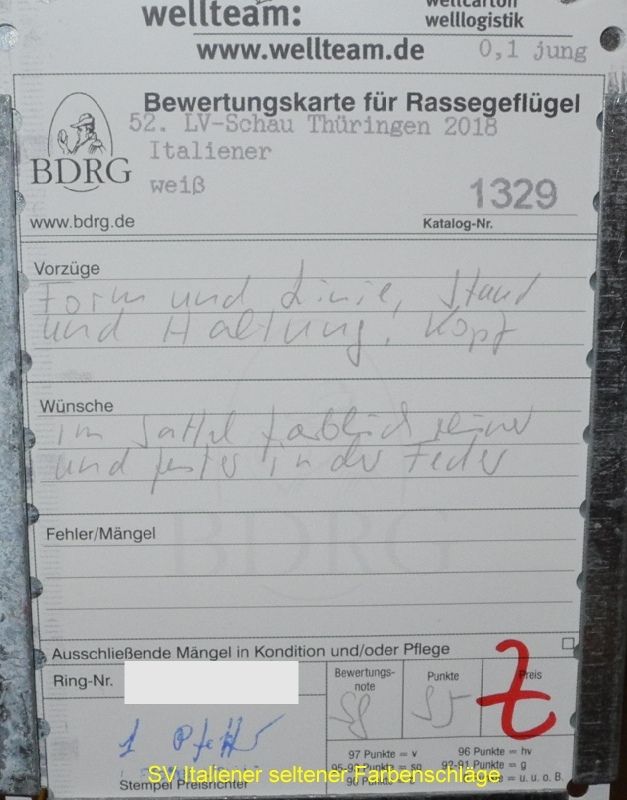 wellteam:
wellcarton
welllogistik
www.wellteam.de
0,1 jung
Bewertungskarte für Rassegeflügel
52. LV-Schau Thüringen 2018
Italiener
weiß
BDRG
1329
www.bdrg.de
Katalog-Nr.
Vorzüge
Form und Linie, Stand
und Haltung, Kopf
Wünsche
im Sattel farblich reiner
und fester in der Feder
BDRG
Fehler/Mängel
Ausschließende Mängel in Kondition und/oder Pflege
Ring-Nr.
Bewertungs-
note
Punkte
Preis
sg
95
Z
97 Punkte = v
96 Punkte = hv
95-93 Punkte = sg
92-91 Punkte = g
90 Punkte =
= u. o. B.
SV Italiener seltener Farbenschläge
Stempel Preisrichter